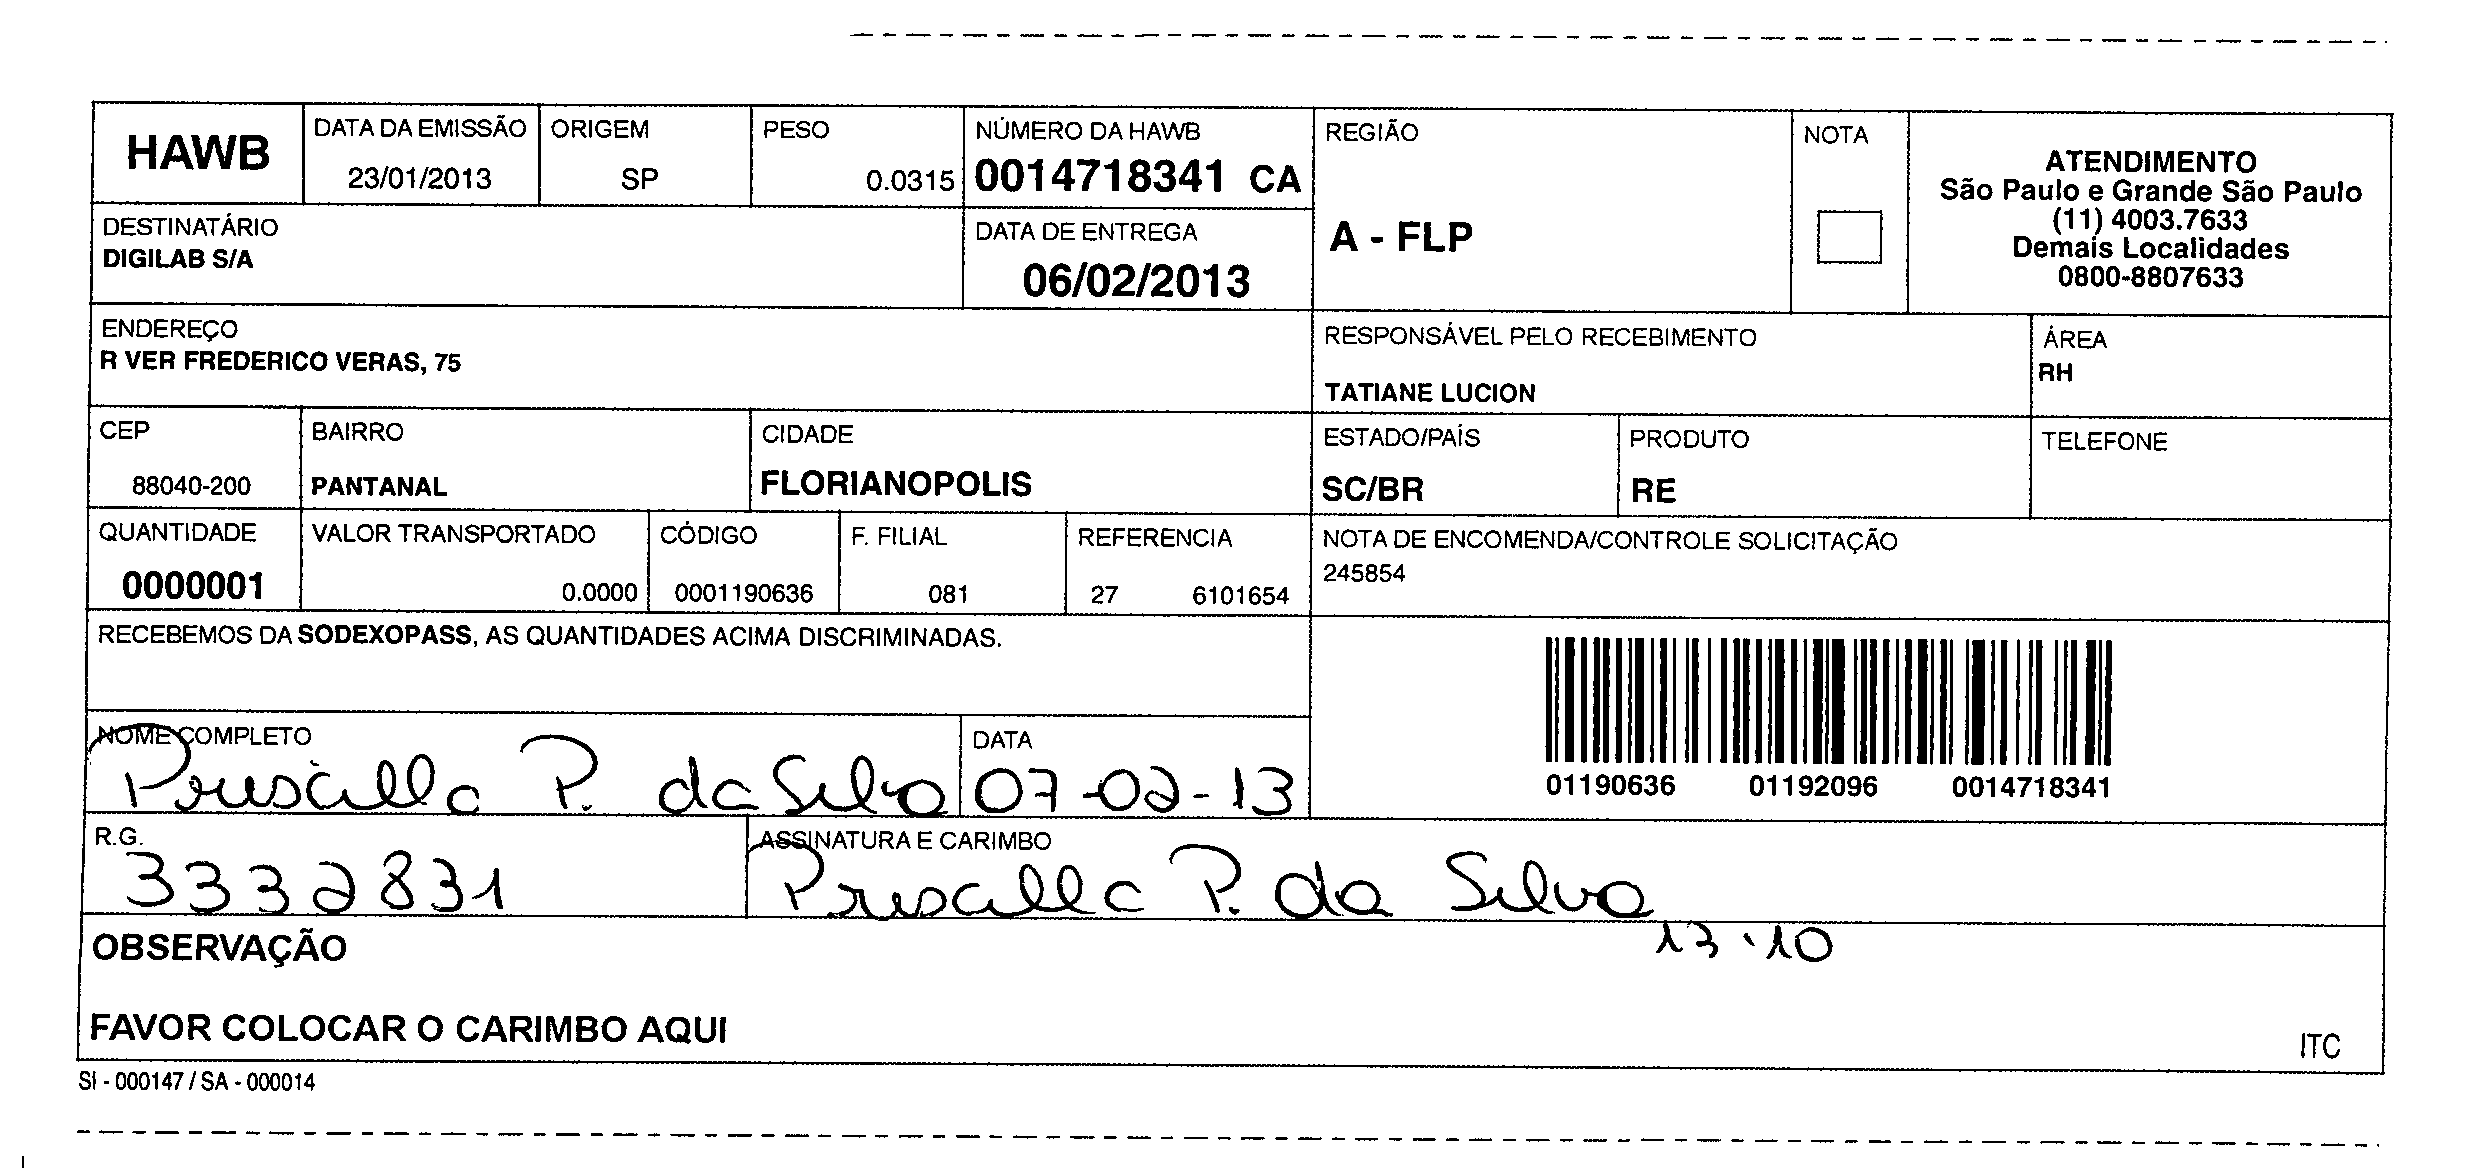 HAWB
DATA DA EMISSÃO
23/01/2013
ORIGEM
SP
PESO
0.0315
NÚMERO DA HAWB
0014718341 CA
REGIÃO
A - FLP
NOTA
ATENDIMENTO
São Paulo e Grande São Paulo
(11) 4003.7633
Demais Localidades
0800-8807633
DESTINATÁRIO
DIGILAB S/A
DATA DE ENTREGA
06/02/2013
ENDEREÇO
R VER FREDERICO VERAS, 75
RESPONSÁVEL PELO RECEBIMENTO
TATIANE LUCION
ÁREA
RH
CEP
88040-200
BAIRRO
PANTANAL
CIDADE
FLORIANOPOLIS
ESTADO/PAÍS
SC/BR
PRODUTO
RE
TELEFONE
QUANTIDADE
0000001
VALOR TRANSPORTADO
0.0000
CÓDIGO
0001190636
F. FILIAL
081
REFERENCIA
27 6101654
NOTA DE ENCOMENDA/CONTROLE SOLICITAÇÃO
245854
RECEBEMOS DA SODEXOPASS, AS QUANTIDADES ACIMA DISCRIMINADAS.
01190636 01192096 0014718341
NOME COMPLETO
Priscilla P. da Silva
DATA
07-02-13
R.G.
3332831
ASSINATURA E CARIMBO
Priscilla P. da Silva
13.10
OBSERVAÇÃO
FAVOR COLOCAR O CARIMBO AQUI
ITC
SI - 000147 / SA - 000014